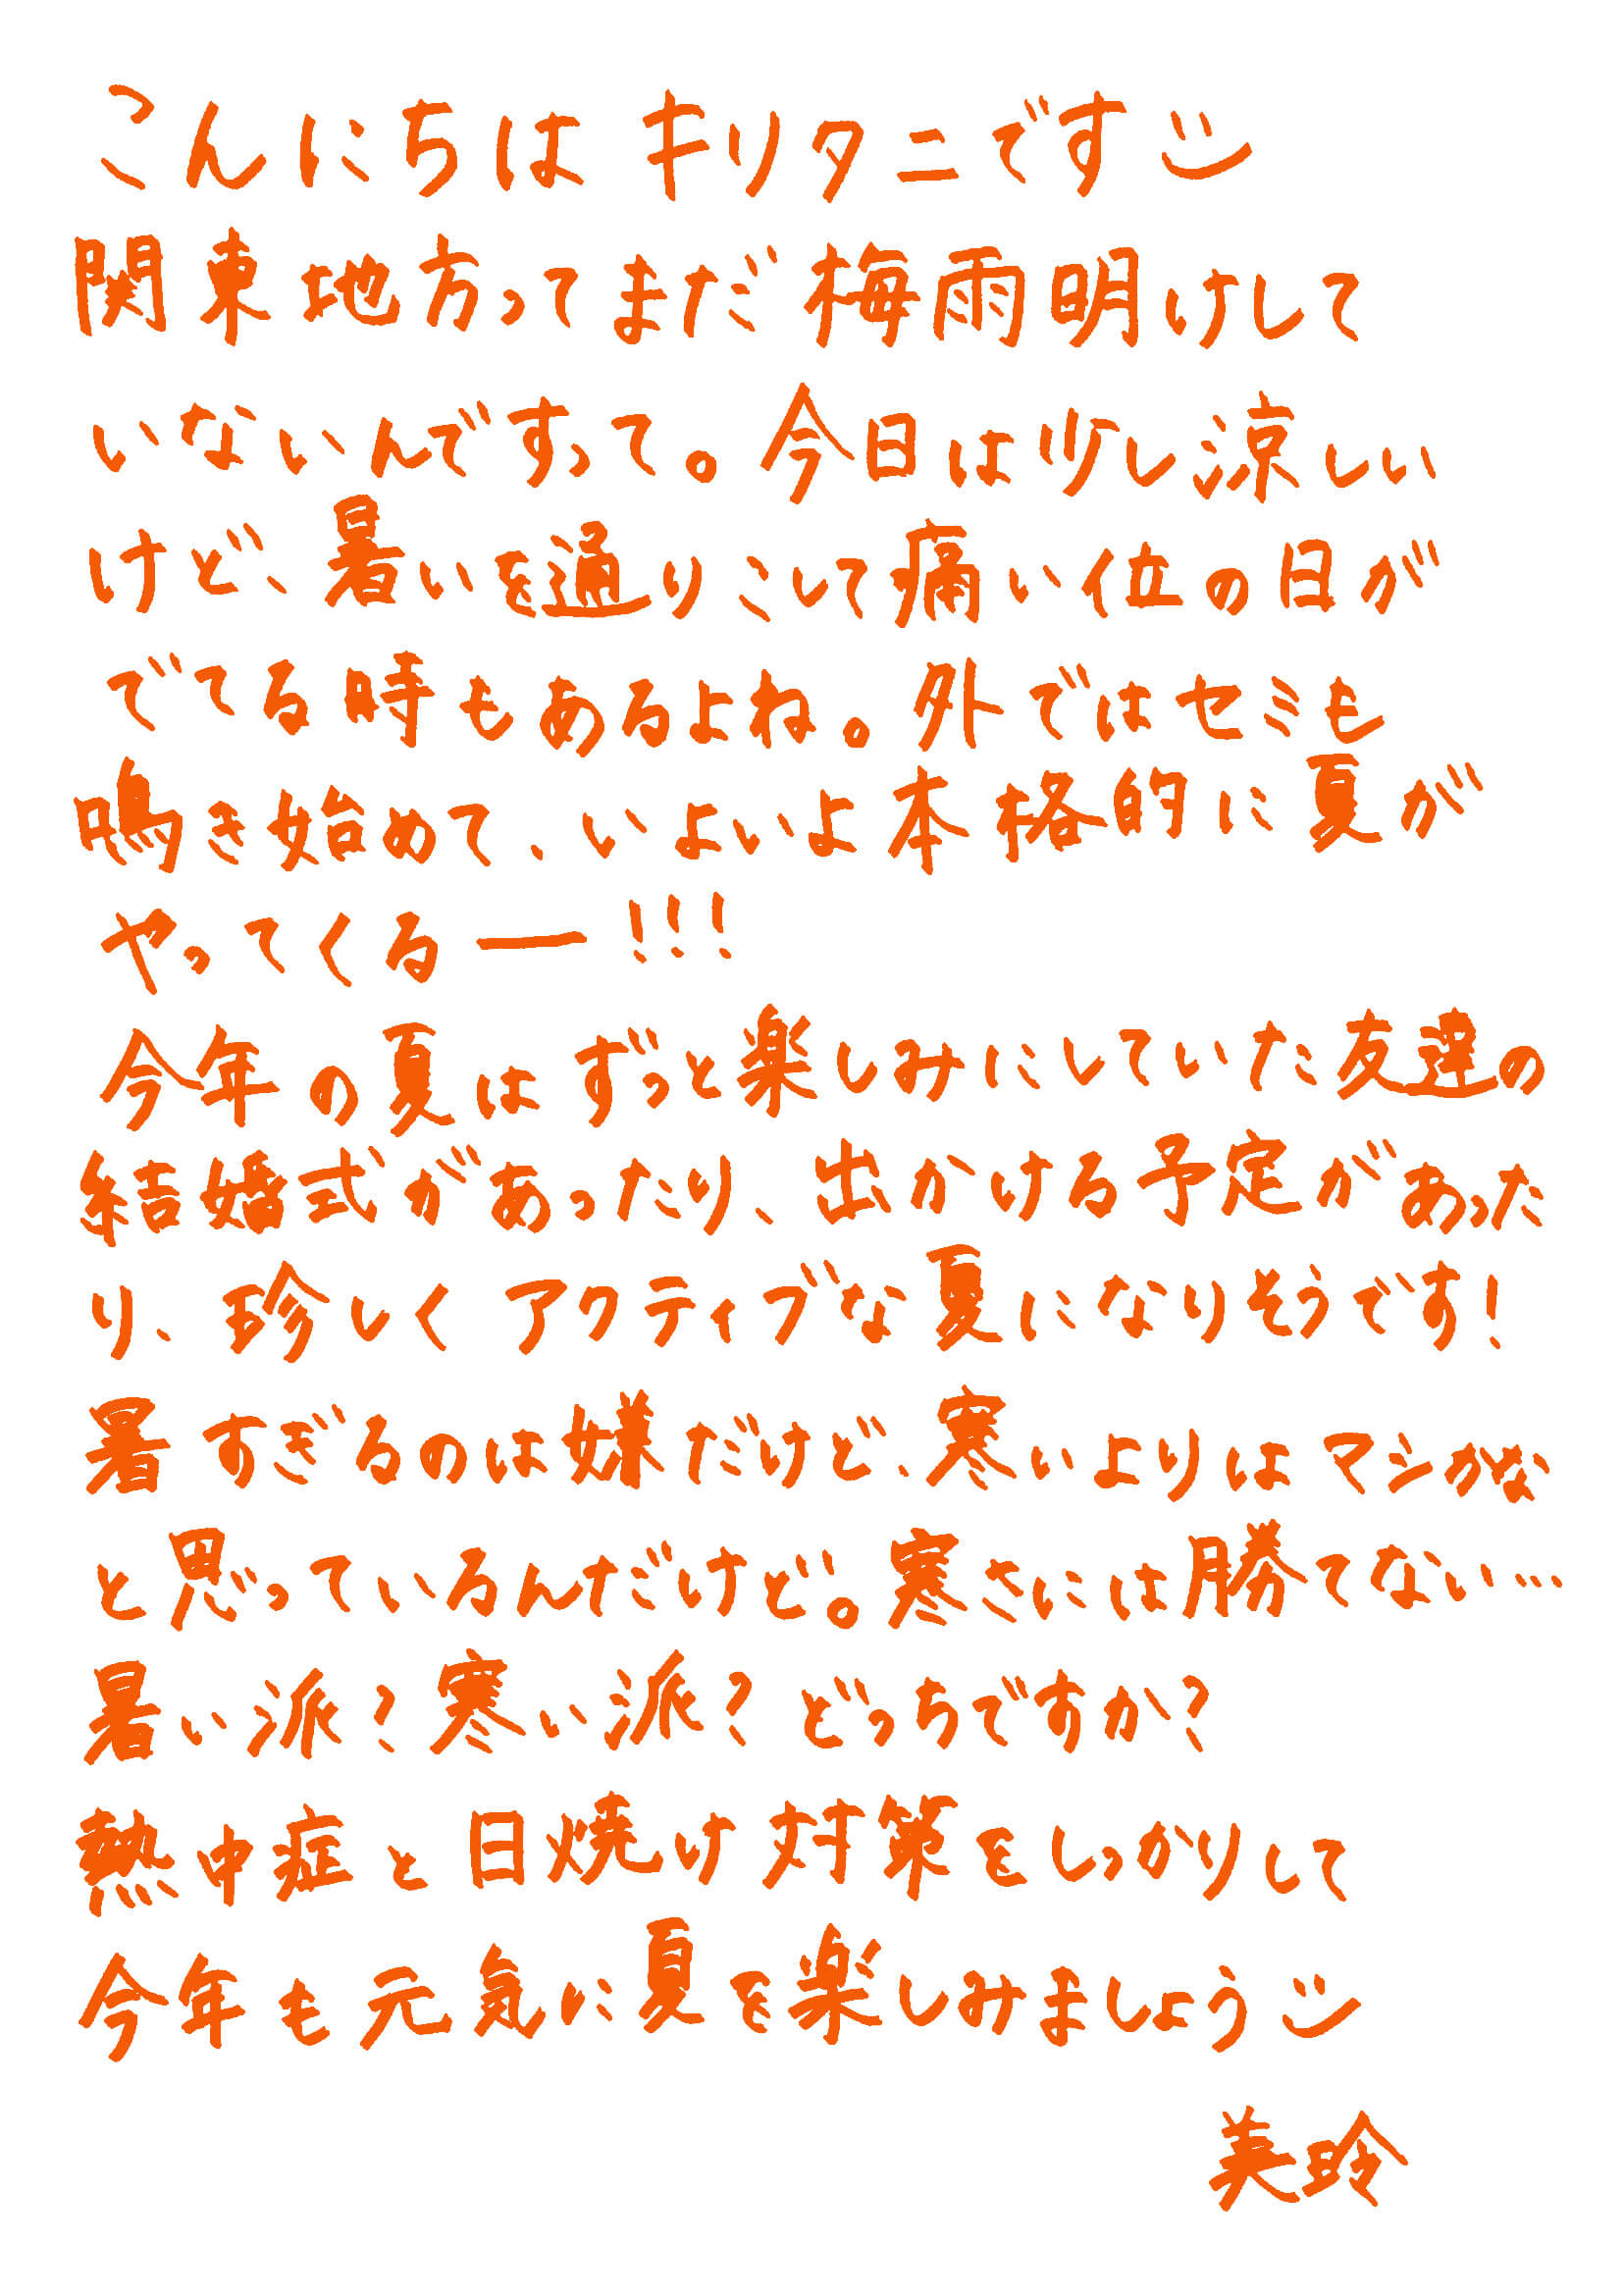 こんにちは キリタニです
関東地方ってまだ梅雨明けして
いないんですって。今日は少し涼しい
けど、暑いを通りこして痛い位の日が
でてる時もあるよね。外ではセミも
鳴き始めて、いよいよ本格的に夏が
やってくるー!!!
今年の夏はずっと楽しみにしていた友達の
結婚式があったり、出かける予定があった
り、珍しくアクティブな夏になりそうです!
暑すぎるのは嫌だけど、寒いよりはマシかな
と思っているんだけど。寒さには勝てない…
暑い派?寒い派?どっちですか?
熱中症と日焼け対策をしっかりして
今年も元気に夏を楽しみましょう
美玲